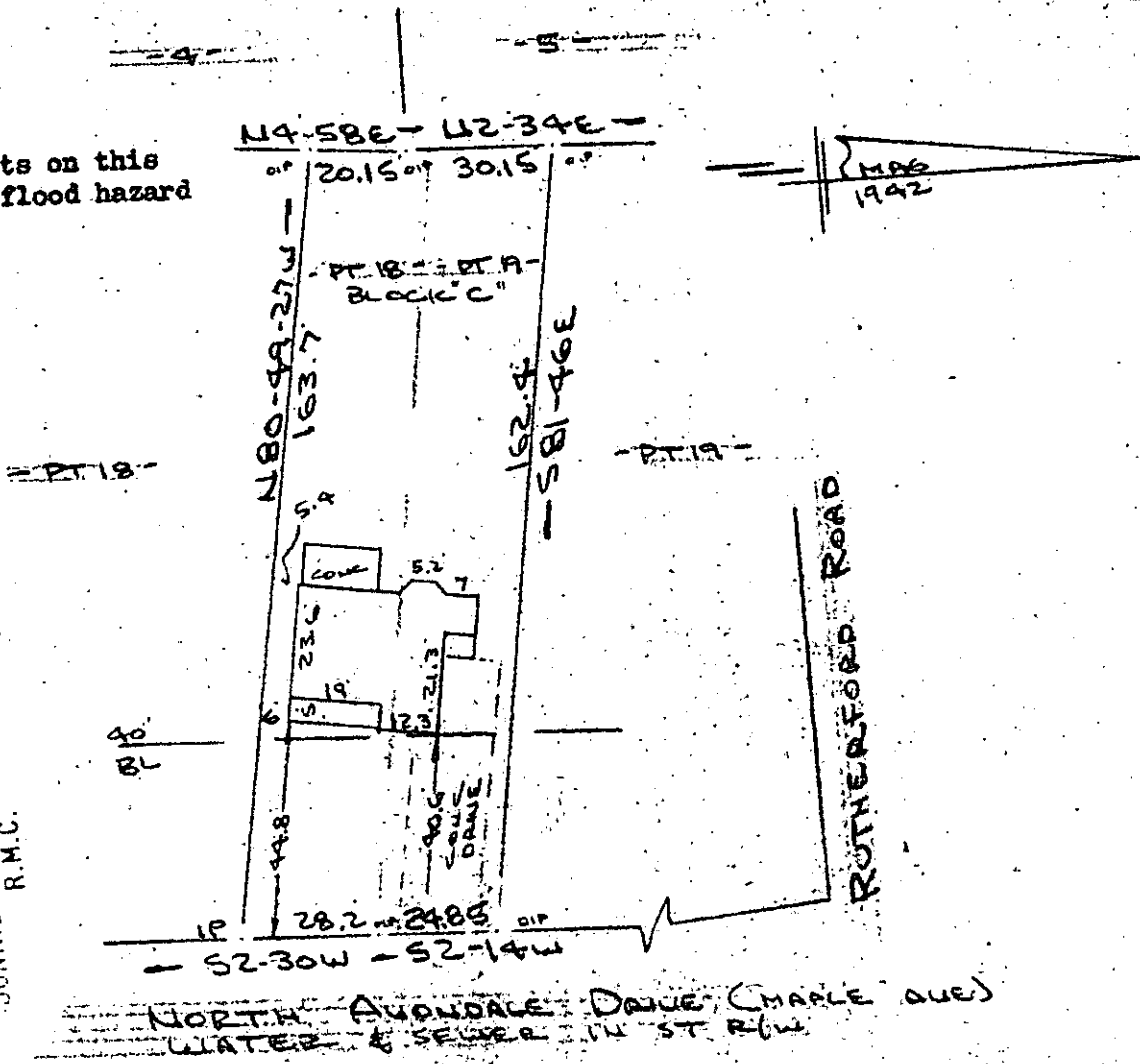 -4-
-5-
N4-58E - N2-34E -
ts on this
flood hazard
OIP 20.15 OIP 30.15 OIP
MAG
1942
- PT 18 - - PT 19 -
BLOCK "C"
N80-49-27W -
163.7
162.4
- S81-46E
- PT 18 -
- PT 19 -
5.4
CONC
5.2
7
23.6
21.3
19
6
5
12.3
40'
BL
44.8
40.6
CONC
DRIVE
ROTHERFORD ROAD
R.M.C.
IP 28.2 24.85 OIP
- S2-30W - S2-14W
NORTH AVONDALE DRIVE (MAPLE AVE)
WATER & SEWER IN ST R/W